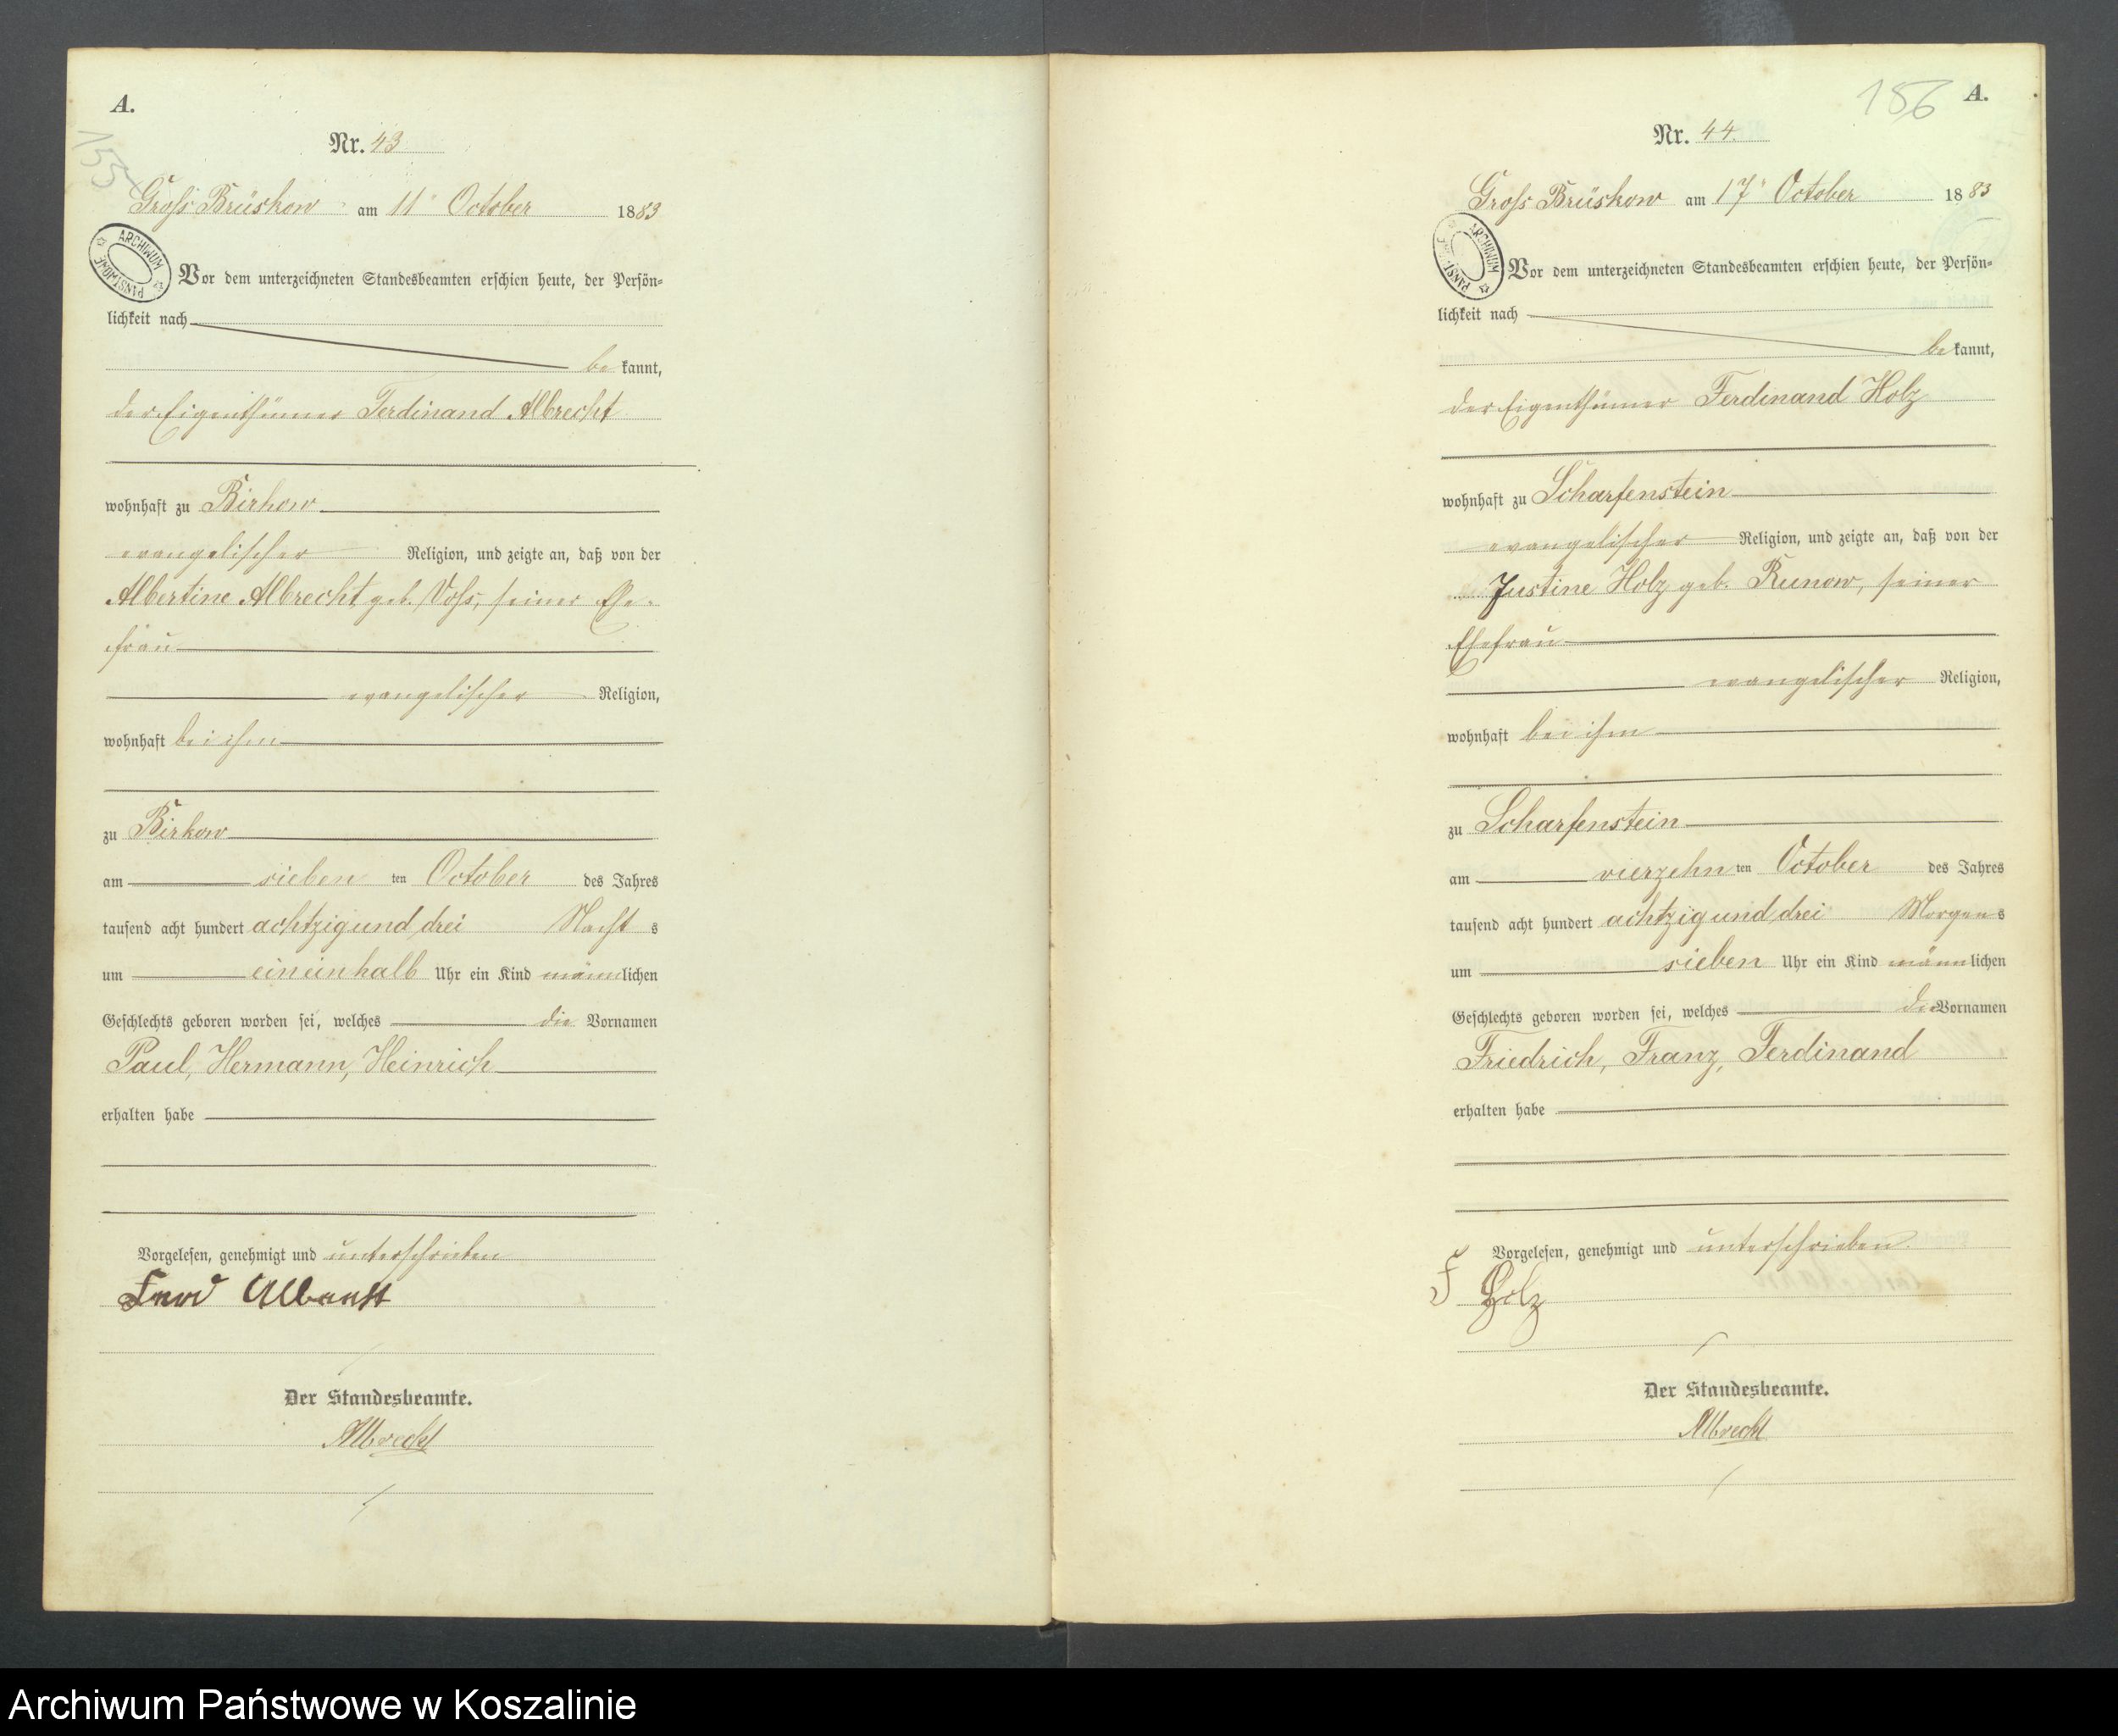 A.
155
Nr. 43
Gross Brüskow am 11ⁿ October 1883
ARCHIWUM PAŃSTWOWE
Vor dem unterzeichneten Standesbeamten erschien heute, der Persön-
lichkeit nach
be kannt,
der Eigenthümer Ferdinand Albrecht
wohnhaft zu Birkow
evangelischer Religion, und zeigte an, daß von der
Albertine Albrecht geb. Voss, seiner Ehe-
frau
evangelischer Religion,
wohnhaft bei ihm
zu Birkow
am sieben ten October des Jahres
tausend acht hundert achtzig und drei Nacht s
um eineinhalb Uhr ein Kind männlichen
Geschlechts geboren worden sei, welches die Vornamen
Paul, Hermann, Heinrich
erhalten habe
Vorgelesen, genehmigt und unterschrieben
Ferd Albrecht
Der Standesbeamte.
Albrecht
186 A.
Nr. 44.
Gross Brüskow am 17ⁿ October 1883
ARCHIWUM PAŃSTWOWE
Vor dem unterzeichneten Standesbeamten erschien heute, der Persön-
lichkeit nach
be kannt,
der Eigenthümer Ferdinand Holz
wohnhaft zu Scharfenstein
evangelischer Religion, und zeigte an, daß von der
Justine Holz geb. Runow, seiner
Ehefrau
evangelischer Religion,
wohnhaft bei ihm
zu Scharfenstein
am vierzehn ten October des Jahres
tausend acht hundert achtzig und drei Morgen s
um sieben Uhr ein Kind männlichen
Geschlechts geboren worden sei, welches die Vornamen
Friedrich, Franz, Ferdinand
erhalten habe
Vorgelesen, genehmigt und unterschrieben.
F Holz
Der Standesbeamte.
Albrecht
Archiwum Państwowe w Koszalinie